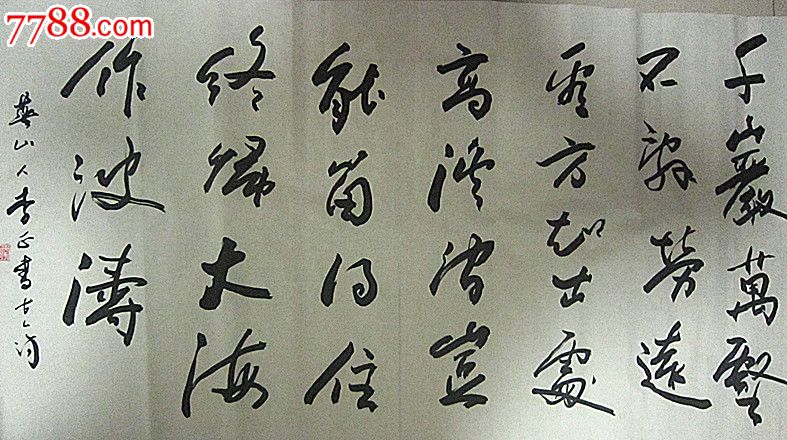 7788.com
千巖萬壑
不辭勞遠
看方知出處
高溪澗豈
能留得住
終歸大海
作波濤
華山人李正書古人詩